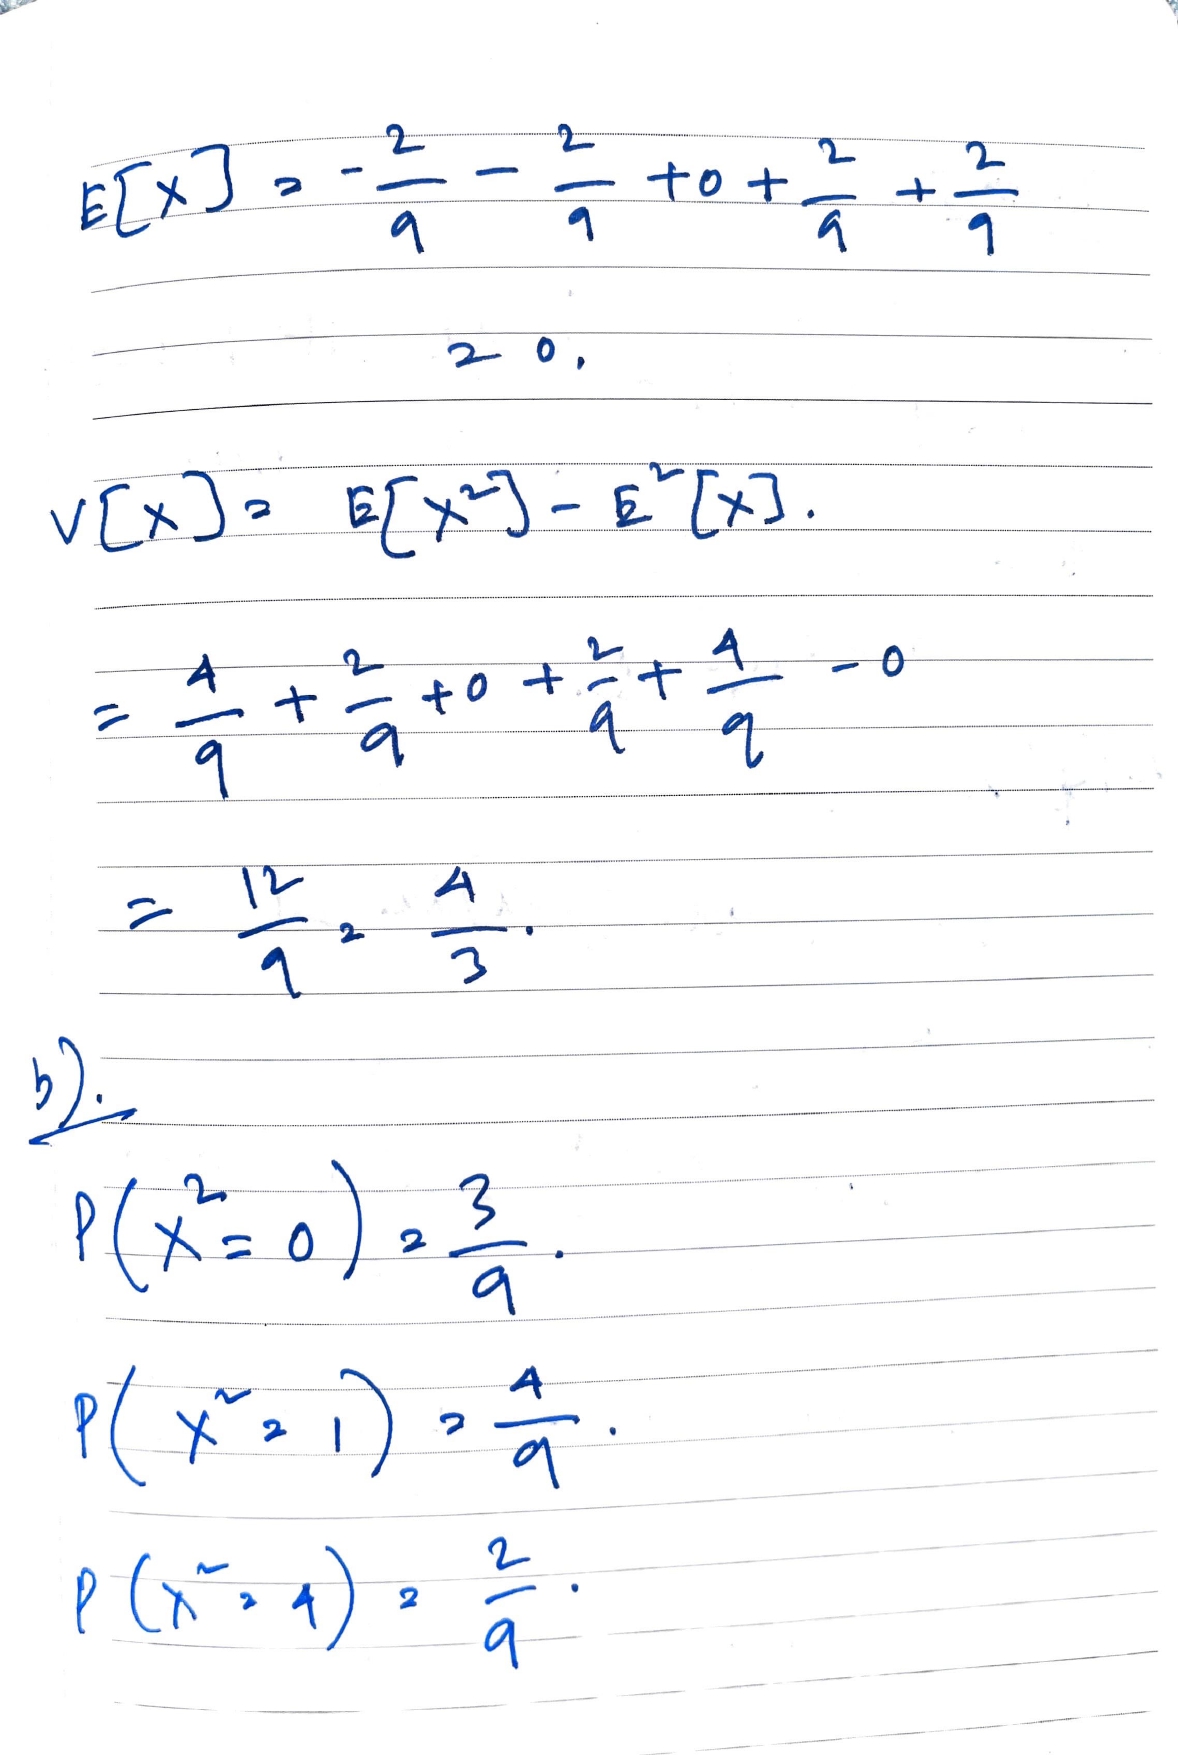 E[X] = -2/9 - 2/9 + 0 + 2/9 + 2/9
= 0.
V[X] = E[X²] - E²[X].
= 4/9 + 2/9 + 0 + 2/9 + 4/9 - 0
= 12/9 = 4/3.
b).
P(X² = 0) = 3/9.
P(X² = 1) = 4/9.
P(X² = 4) = 2/9.